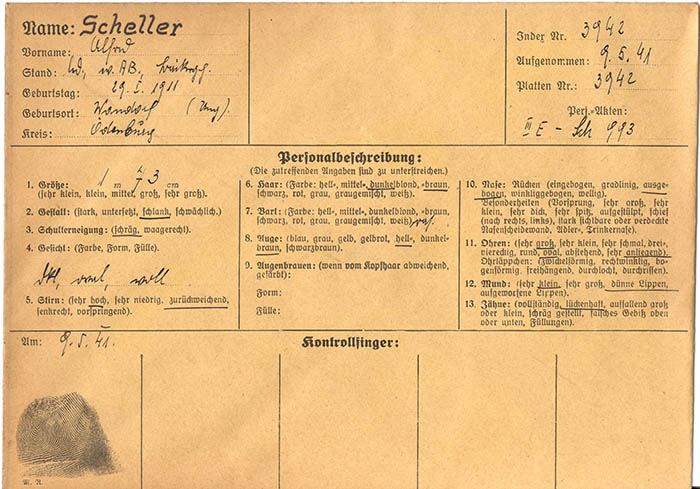 Name: Scheller
Vorname: Alfred
Stand: led, w. AB,
Geburtstag: 29. I. 1911
Geburtsort: Wandorf (Ung).
Kreis: Ödenburg
Index Nr. 3942
Aufgenommen: 9. 5. 41
Platten Nr.: 3942
Pers.-Akten:
III E - Sch 993
Personalbeschreibung:
(Die zutreffenden Angaben sind zu unterstreichen.)
1. Größe: 1 m 73 cm
(sehr klein, klein, mittel, groß, sehr groß).
2. Gestalt: (stark, untersetzt, schlank, schwächlich).
3. Schulterneigung: (schräg, waagerecht).
4. Gesicht: (Farbe, Form, Fülle).
dkl, oval, voll
5. Stirn: (sehr hoch, sehr niedrig, zurückweichend,
senkrecht, vorspringend).
6. Haar: (Farbe: hell-, mittel-, dunkelblond, -braun,
schwarz, rot, grau, graugemischt, weiß).
7. Bart: (Farbe: hell-, mittel-, dunkelblond, -braun,
schwarz, rot, grau, graugemischt, weiß) ras.
8. Auge: (blau, grau, gelb, gelbrot, hell-, dunkel-
braun, schwarzbraun).
9. Augenbrauen: (wenn vom Kopfhaar abweichend,
gefärbt):
Form:
Fülle:
10. Nase: Rücken (eingebogen, gradlinig, ausge-
bogen, winkliggebogen, wellig).
Besonderheiten (Vorsprung, sehr groß, sehr
klein, sehr dick, sehr spitz, aufgestülpt, schief
(nach rechts, links), stark sichtbare oder verdeckte
Nasenscheidewand, Adler-, Trinkernase).
11. Ohren: (sehr groß, sehr klein, sehr schmal, drei-,
viereckig, rund, oval, abstehend, sehr anliegend).
Ohrläppchen: (zwickelförmig, rechtwinklig, bo-
genförmig, freihängend, durchlocht, durchrissen).
12. Mund: (sehr klein, sehr groß, dünne Lippen,
aufgeworfene Lippen).
13. Zähne: (vollständig, lückenhaft, auffallend groß
oder klein, schräg gestellt, falsches Gebiß oben
oder unten, Füllungen).
Am: 9. 5. 41.
Kontrollfinger: